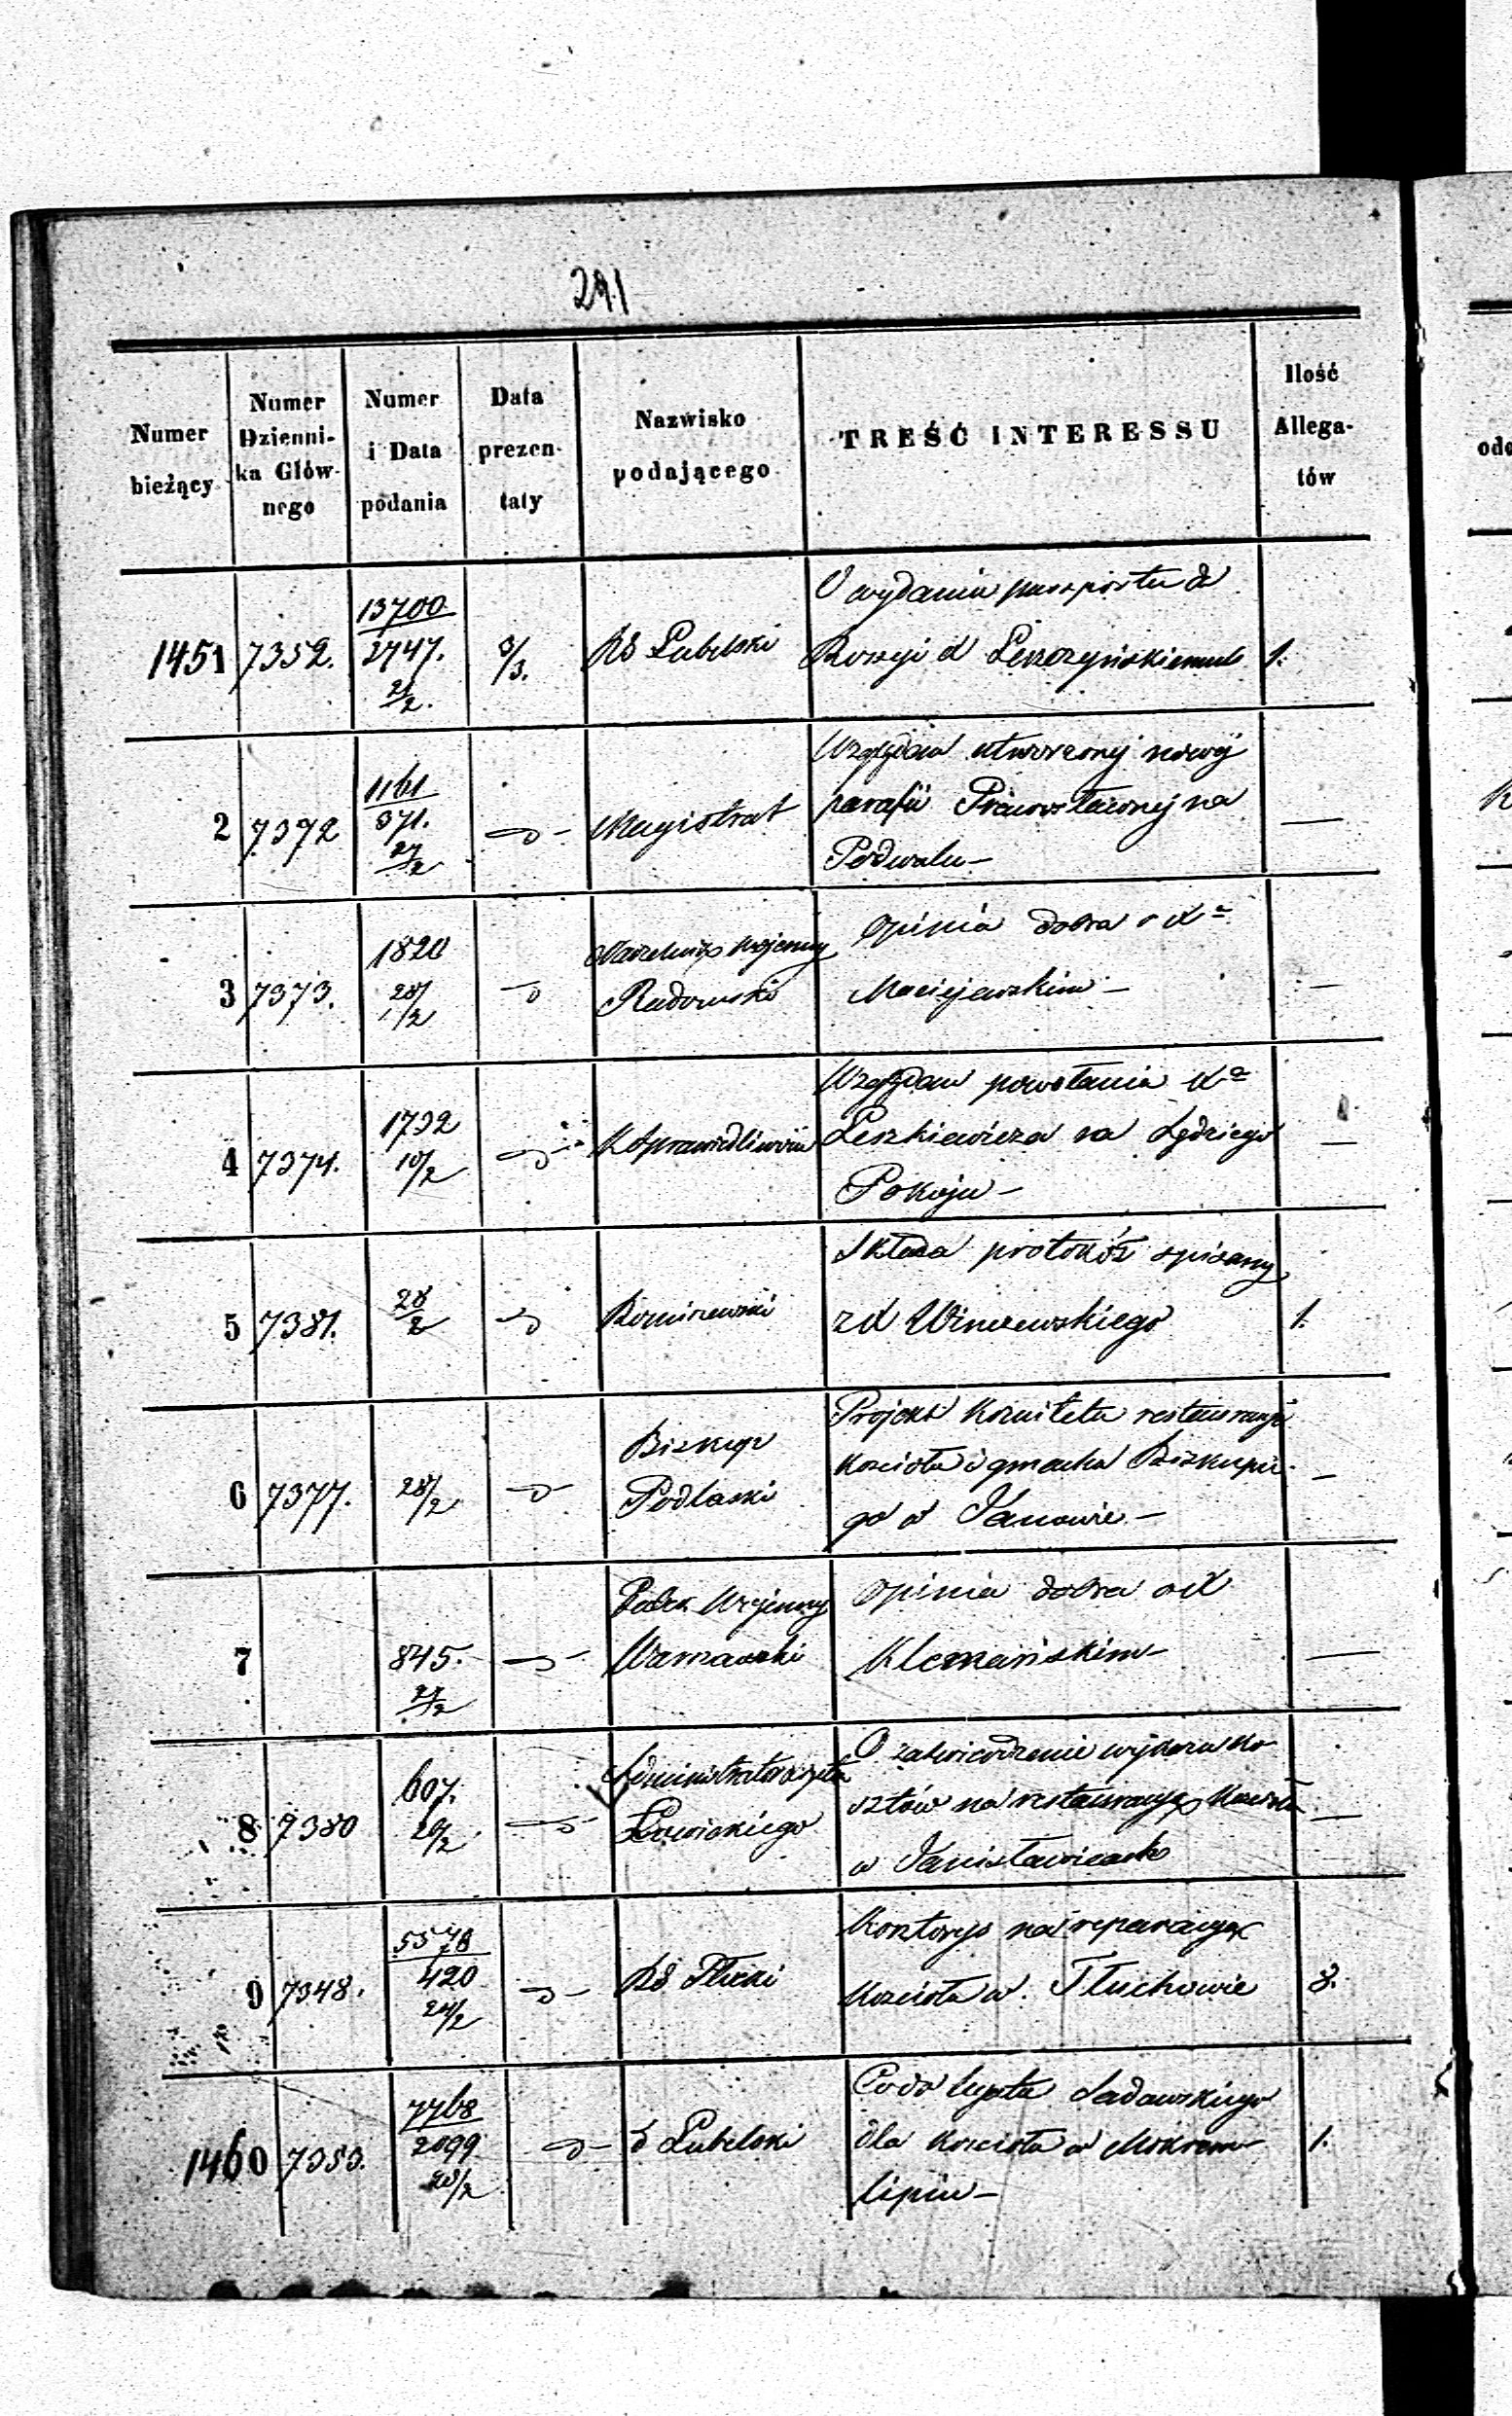 291
Numer bieżący | Numer Dzienni-ka Głów-nego | Numer i Data podania | Data prezen-taty | Nazwisko podającego | TREŚĆ INTERESSU | Ilość Allega-tów
1451 7352. 13700 2747. 21/2. 3/3. RG Lubelski
O wydaniu paszportu do
Rossyi X Leszczyńskiemu 1.
2 7372 1161 371. 27/2 -D- Magistrat
Względem utworzonej nowej
parafii Prawosławnej na
Podwalu — —
3 7373. 1820 28/2 D Naczelnik Wojenny
Radomski
Opinia dobra o Xu
Maciejewskim — —
4 7374. 1732 10/2 D KSprawiedliwości
Względem powołania Xa
Leszkiewicza na Sędziego
Pokoju — —
5 7381. 28/2 D
Składa protokół spisany
z X Winczewskiego 1.
6 7377. 28/2 -D- Biskup
Podlaski
Projekt Komitetu restauracyi
Kościoła i gmachu Biskupie-
go w Janowie — —
7 845. 27/2 D Wojenny
Warszawski
Opinia dobra o X
—
8 7380 607. 20/2 D Administrator
Łowickiego
O zatwierdzenie wykazu ko-
sztów na restauracyę Kościoła
w Janisławicach —
9 7348. 5578 420 24/2 D- RG Płocki
Kosztorys na reparacyę
Kościoła w Tłuchowie 8.
1460 7353. 7768 2099 28/2 -D- d Lubelski
Co do legatu Sadowskiego
dla Kościoła w Mokrem-
lipiu — 1.